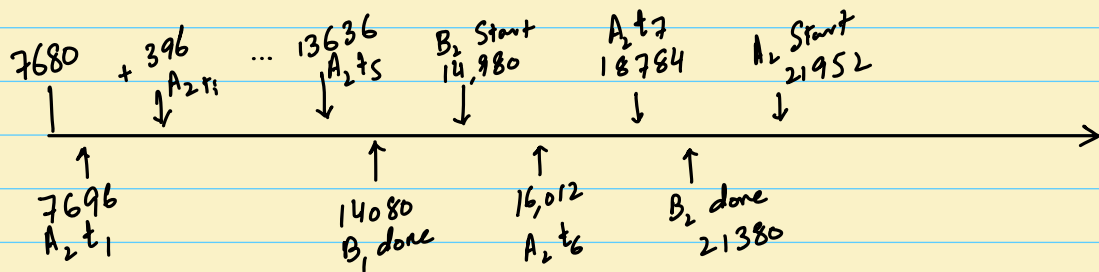 7680
+ 396
A₂ t₁
...
13636
A₂ t₅
B₂ Start
14,980
A₂ t₇
18784
A₂ Start
21952
7696
A₂ t₁
14080
B₁ done
16,012
A₂ t₆
B₂ done
21380